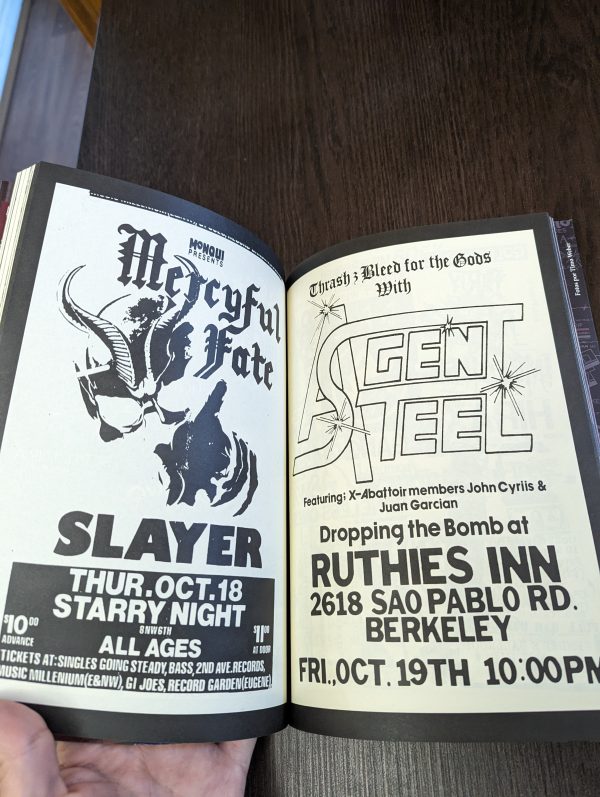 MONQUI
PRESENTS
Mercyful
Fate
SLAYER
THUR.OCT.18
STARRY NIGHT
8NW6TH
$10.00
ADVANCE
ALL AGES
$11.00
AT DOOR
TICKETS AT:SINGLES GOING STEADY,BASS,2ND AVE.RECORDS,
MUSIC MILLENIUM(E&NW), GI JOES, RECORD GARDEN(EUGENE)
Thrash & Bleed for the Gods
With
AGENT
STEEL
Featuring; X-Abattoir members John Cyriis &
Juan Garcian
Dropping the Bomb at
RUTHIES INN
2618 SAO PABLO RD.
BERKELEY
FRI.,OCT. 19TH 10:00PM
Fotos por Timo Weber